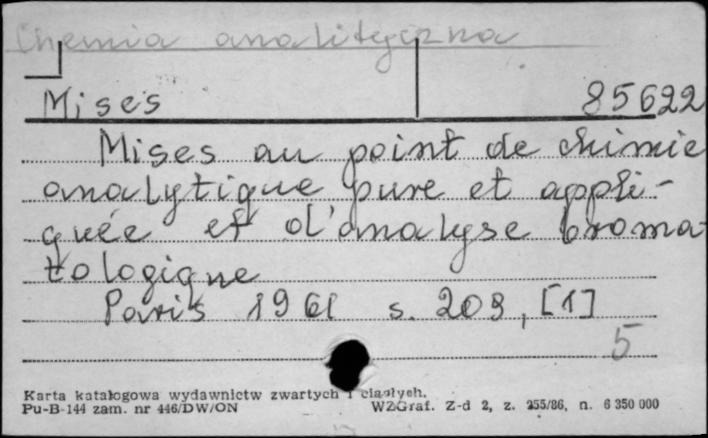 Chemia analityczna
Mises 85622
Mises au point de chimie
analytique pure et appli-
quée et d'analyse broma-
tologique
Paris 1961 s. 209, [1]
5
Karta katalogowa wydawnictw zwartych i ciągłych.
Pu-B-144 zam. nr 446/DW/ON WZGraf. Z-d 2, z. 255/86, n. 6 350 000